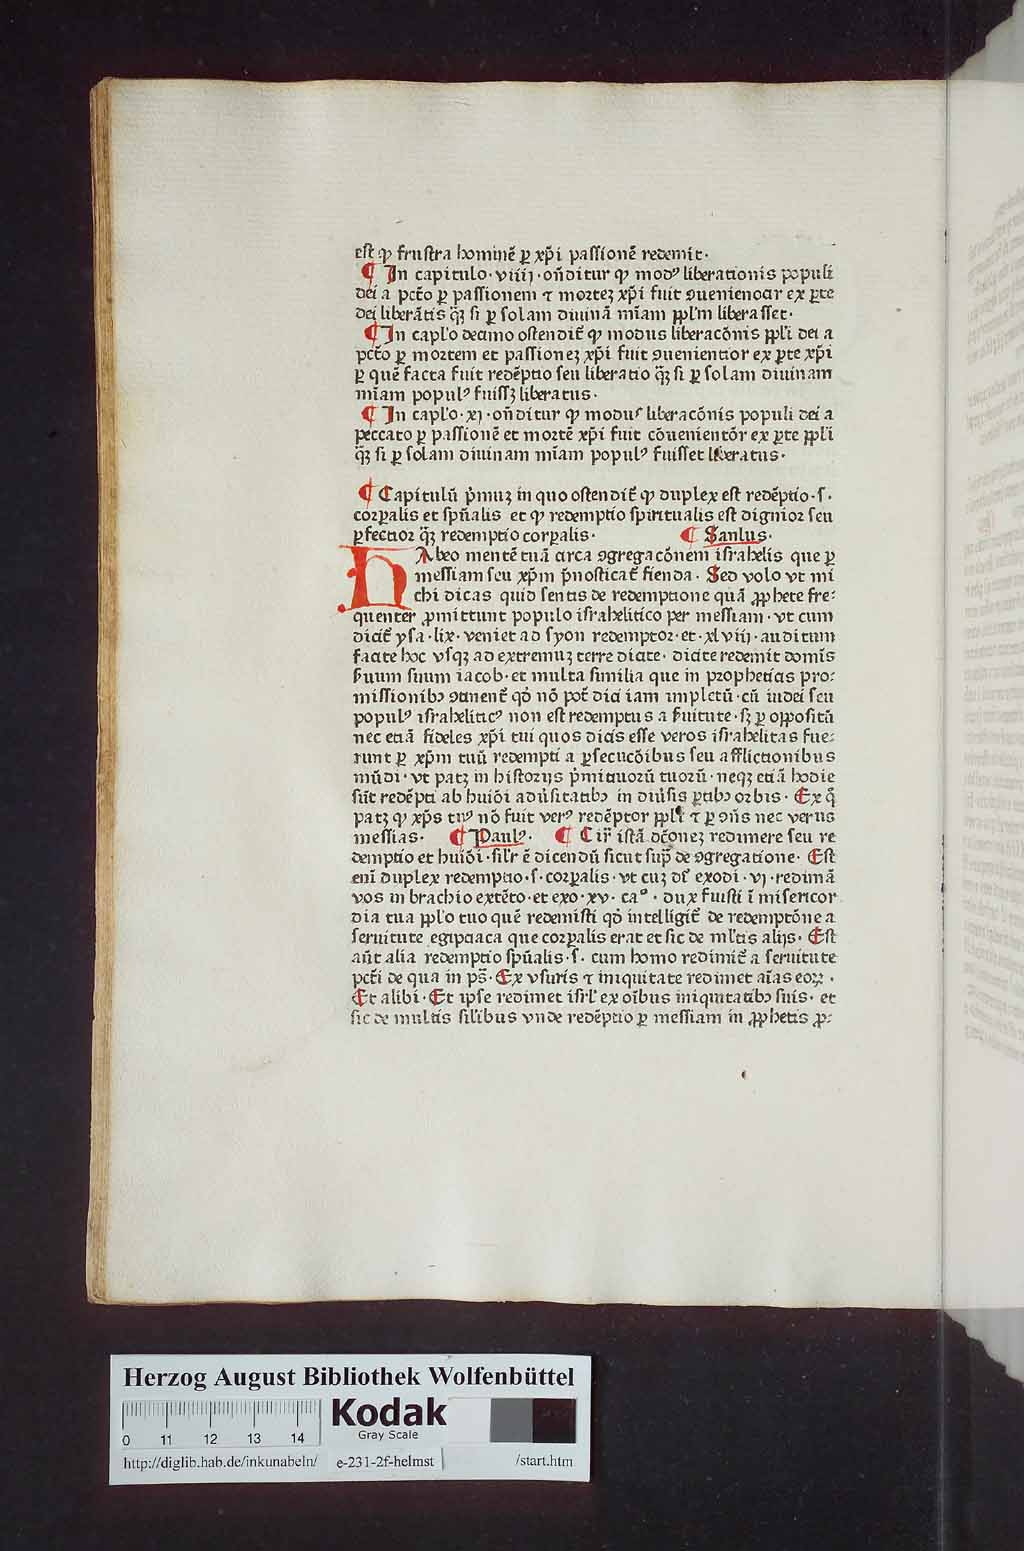 est ꝙ frustra hominē ꝑ xp̄i passionē redemit·
¶ In capitulo·viiij·on̄ditur ꝙ modꝰ liberationis populi
dei a pctō ꝑ passionem ⁊ morteꝫ xp̄i fuit ꝯuenienciar ex ꝑte
dei liberātis qȝ si ꝑ solam diuinā miam ppl'm liberasset·
¶ In capl'o decimo ostendit̄ ꝙ modus liberacōnis ppl'i dei a
pctō ꝑ mortem et passioneꝫ xp̄i fuit ꝯuenientior ex ꝑte xp̄i
ꝑ quē facta fuit redēptio seu liberatio qȝ si ꝑ solam diuinam
miam populꝰ fuissȝ liberatus·
¶ In capl'o·xj·on̄ditur ꝙ modus liberacōnis populi dei a
peccato ꝑ passionē et mortē xp̄i fuit cōuenientōr ex ꝑte ppl'i
qȝ si ꝑ solam diuinam miam populꝰ fuisset liberatus·
¶ Capitulū pͥmuꝫ in quo ostendit̄ ꝙ duplex est redēptio·s·
corꝑalis et spūalis et ꝙ redemptio spiritualis est dignior seu
ꝑfectior qȝ redemptio corꝑalis· ¶ Saulus·
HAbeo mentē tuā circa ꝯgregacōnem israhelis que ꝑ
messiam seu xp̄m p̄nosticat̄ fienda· Sed volo vt mi
chi dicas quid sentis de redemptione quā ꝓphete fre⸗
quenter ꝓmittunt populo israhelitico per messiam·vt cum
dicit̄ ysa·lix·veniet ad syon redemptor·et·xlviij·auditum
facite hoc vsqȝ ad extremuꝫ terre dicite· dicite redemit domīs
ẜuum suum iacob·et multa similia que in prophetias pro⸗
missionibꝰ ꝯtinent̄ qd̄ nō pōt dici iam impletū·cū iudei seu
populꝰ israheliticꝰ non est redemptus a ẜuitute·sȝ ꝑ oppositū
nec etiā fideles xp̄i tui quos dicis esse veros israhelitas fue⸗
runt ꝑ xp̄m tuū redempti a ꝑsecucōibus seu afflictionibus
mūdi·vt patȝ in historijs pͥmitiuorū tuorū·neqȝ etiā hodie
sūt redēpti ab huiōi aduersitatibꝰ in diūsis ꝑtibꝰ orbis· Ex q̄
patȝ ꝙ xp̄s tuꝰ nō fuit verꝰ redēptor ppl'i ⁊ ꝑ ꝯn̄s nec verus
messias· ¶ Paulꝰ· ¶ Cir̄ istā dc̄oneꝫ redimere seu re
demptio et huiōi·sil'r ē dicendū sicut supͣ de ꝯgregatione· Est
enī duplex redemptio·s·corꝑalis·vt cuꝫ dr̄ exodi·vj·redimā
vos in brachio extēto·et exo·xv·caͦ·dux fuisti ī misericor
dia tua ppl'o tuo quē redemisti qd̄ intelligit̄ de redemptōne a
seruitute egiptiaca que corꝑalis erat et sic de ml'tis alijs· Est
aūt alia redemptio spūalis·s·cum homo redimit̄ a seruitute
pcti de qua in ps̄· Ex vsuris ⁊ iniquitate redimet aīas eoꝝ·
Et alibi·Et ipse redimet isrl' ex oībus iniquitatibꝰ suis· et
sic de multis silībus vnde redēptio ꝑ messiam in ꝓphetis ꝓ⸗
Herzog August Bibliothek Wolfenbüttel
0 11 12 13 14
Kodak
Gray Scale
http://diglib.hab.de/inkunabeln/ e-231-2f-helmst /start.htm